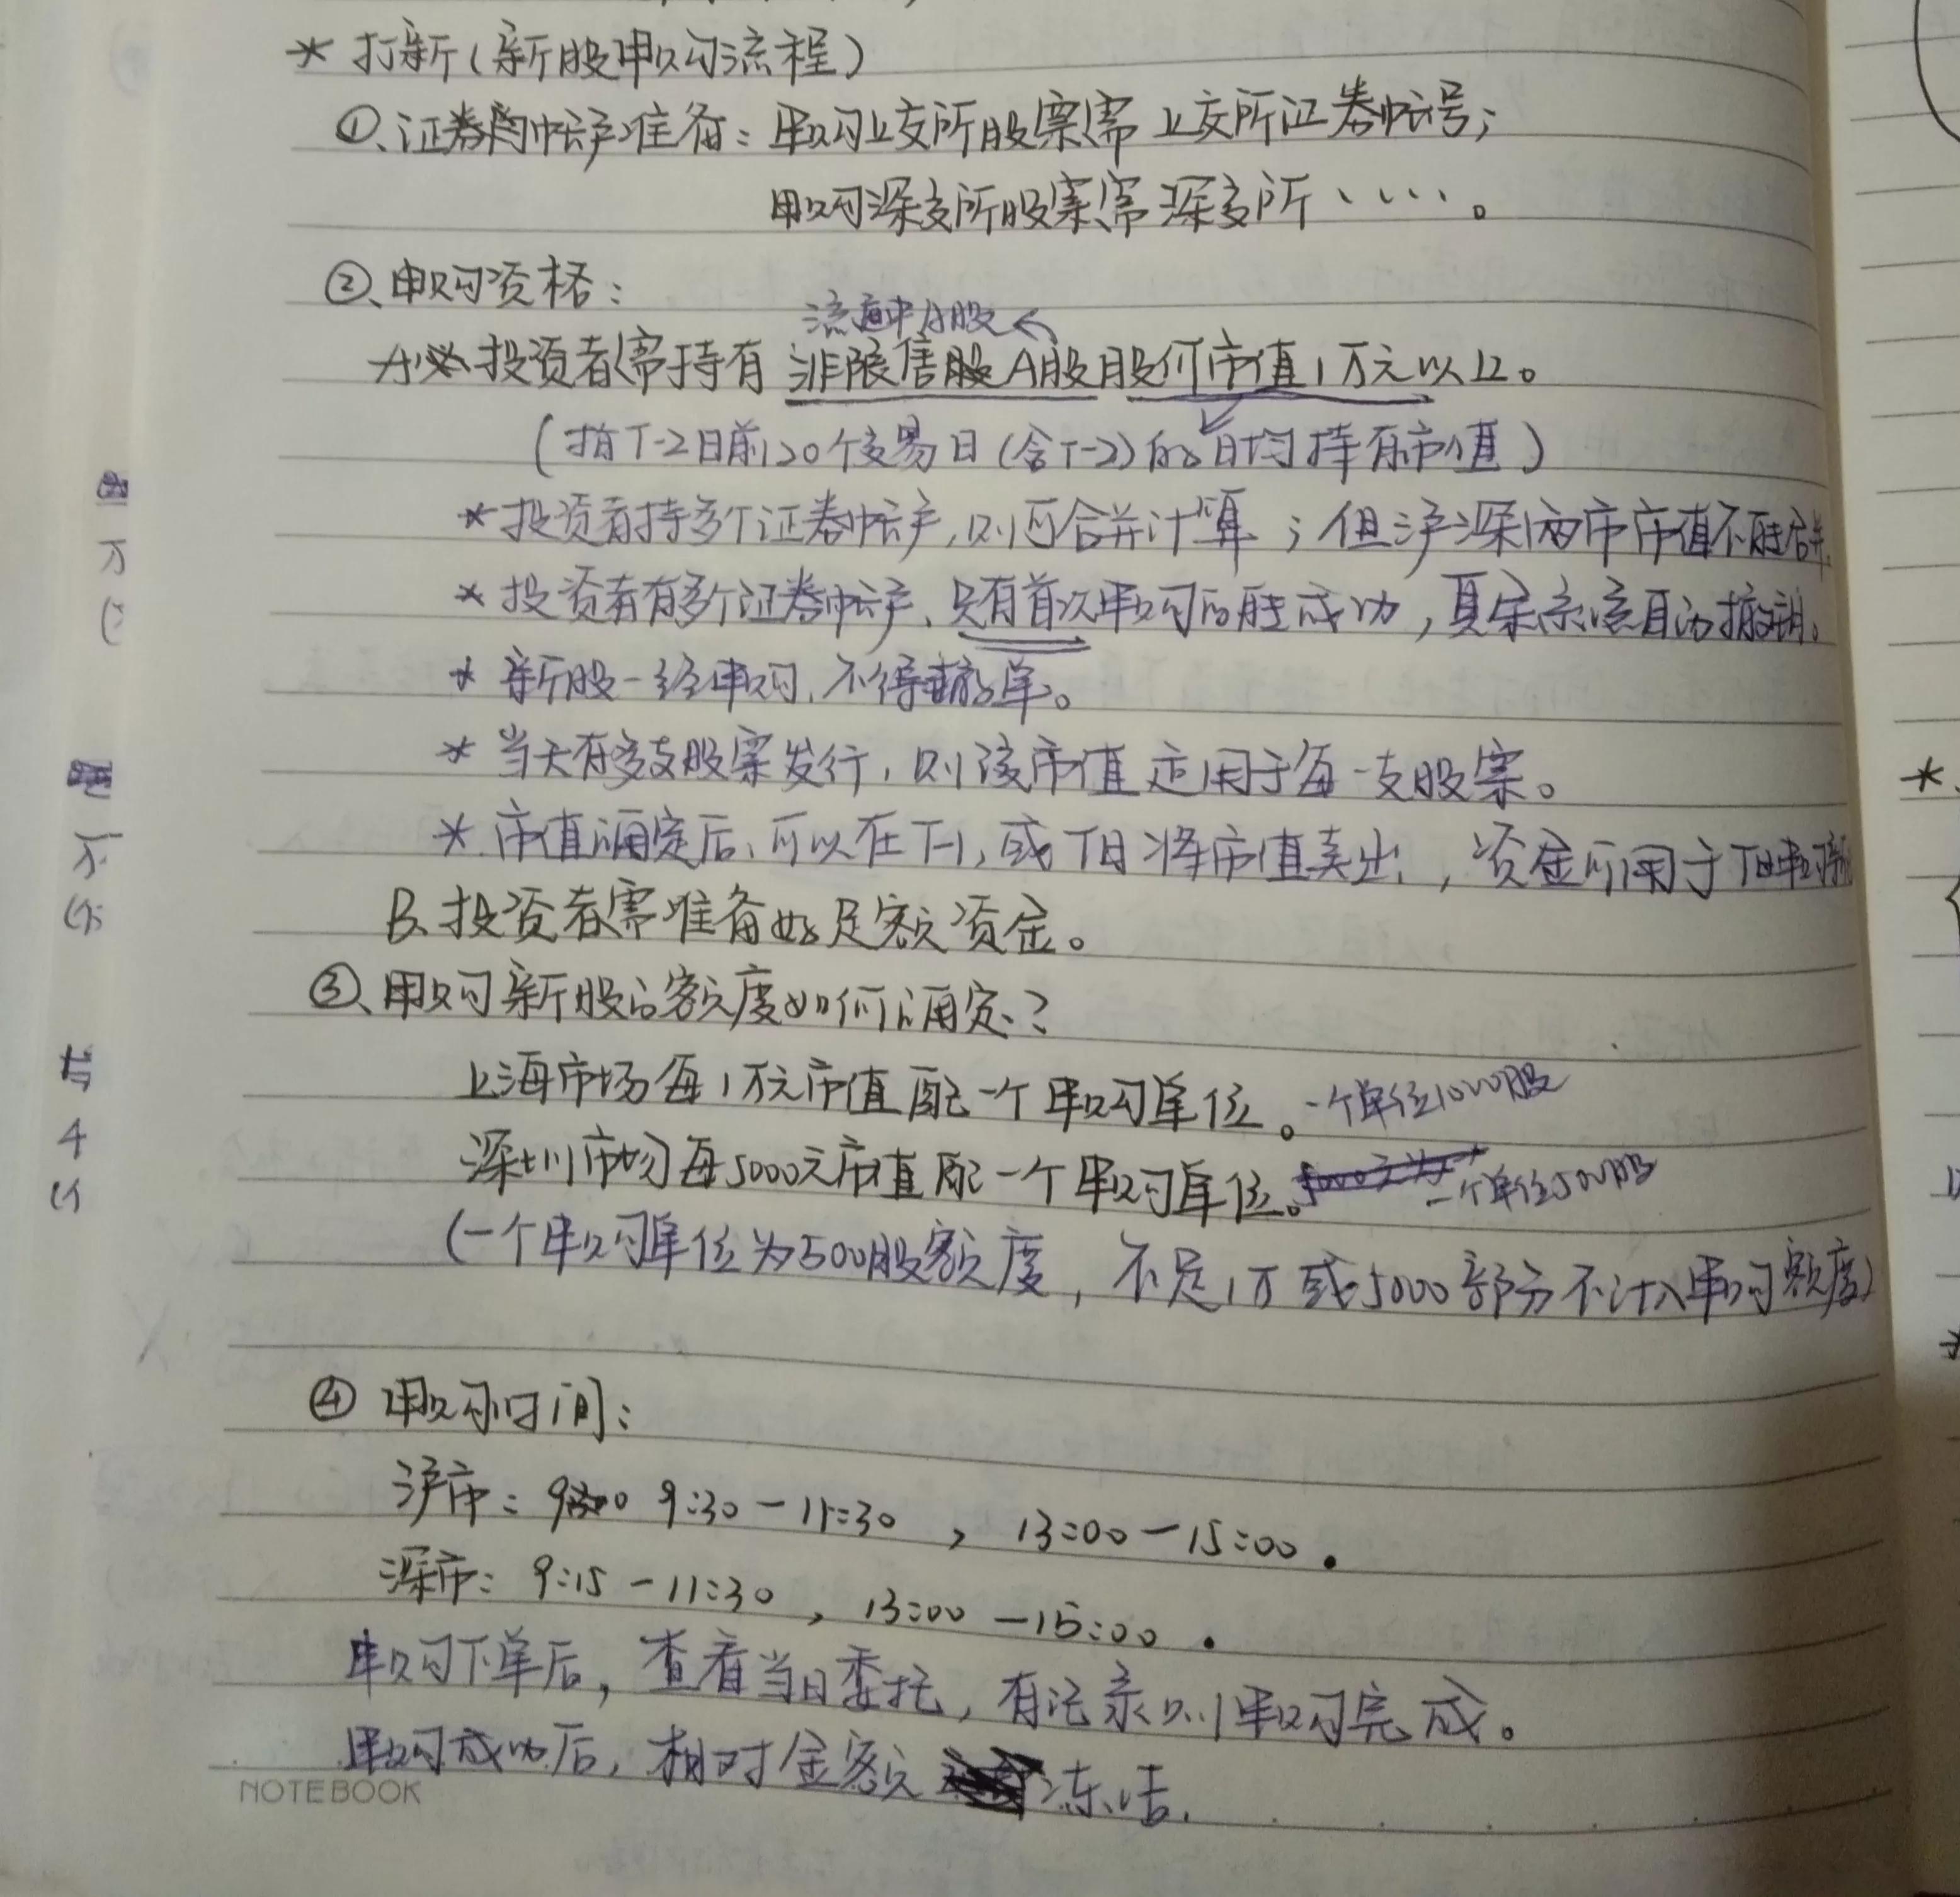 * 打新(新股申购流程)
①、证券帐户准备：申购上交所股票需上交所证券帐号；
申购深交所股票需深交所、、、、。
②、申购资格：
流通中A股
A、投资者需持有非限售A股股份市值1万元以上。
(指T-2日前20个交易日(含T-2)的日均持有市值)
* 投资者持多个证券帐户,则可合并计算；但沪深两市市值不能合并.
* 投资者有多个证券帐户、只有首次申购可能成功，其余系统自动撤销。
* 新股一经申购,不得撤单。
* 当天有多支股票发行，则该市值适用于每一支股票。
* 市值确定后、可以在T-1,或T日将市值卖出，资金可用于T日申购新
B、投资者需准备好足额资金。
③、申购新股的额度如何确定?
上海市场每1万元市值配一个申购单位。一个单位1000股
深圳市场每5000元市值配一个申购单位。一个单位500股
(一个申购单位为500股额度，不足1万或5000部分不计入申购额度)
④ 申购时间：
沪市：9:30－11:30，13:00－15:00.
深市：9:15－11:30，13:00－15:00.
申购下单后，查看当日委托，有记录则申购完成。
申购成功后，相对金额冻结.
NOTEBOOK